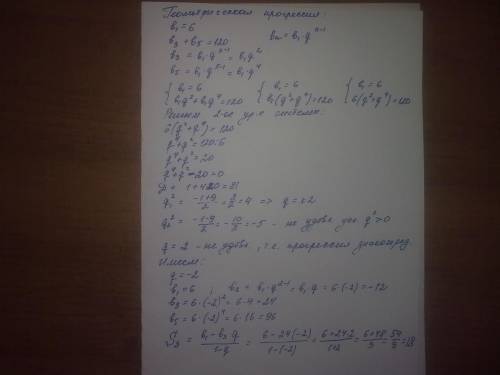 Геометрическая прогрессия:
b₁ = 6
b₃ + b₅ = 120 bₙ = b₁·qⁿ⁻¹
b₃ = b₁·q³⁻¹ = b₁q²
b₅ = b₁·q⁵⁻¹ = b₁q⁴
{ b₁ = 6 { b₁ = 6 { b₁ = 6
b₁q² + b₁q⁴ = 120 b₁(q²+q⁴) = 120 6(q²+q⁴) = 120
Решаем 2-ое ур-е системы:
6(q²+q⁴) = 120
q⁴+q² = 120:6
q⁴+q² = 20
q⁴+q²-20=0
D = 1+4·20 = 81
q₁² = (-1+9)/2 = 8/2 = 4 => q = ±2
q₂² = (-1-9)/2 = -10/2 = -5 - не удовл. усл. q²>0
q = 2 - не удовл., т.к. прогрессия знакоперед.
Имеем:
q = -2
b₁ = 6 ; b₂ = b₁·q²⁻¹ = b₁·q = 6·(-2) = -12
b₃ = 6·(-2)² = 6·4 = 24
b₅ = 6·(-2)⁴ = 6·16 = 96
S₃ = (b₁-b₃q)/(1-q) = (6-24(-2))/(1-(-2)) = (6+24·2)/(1+2) = (6+48)/3 = 54/3 = 18